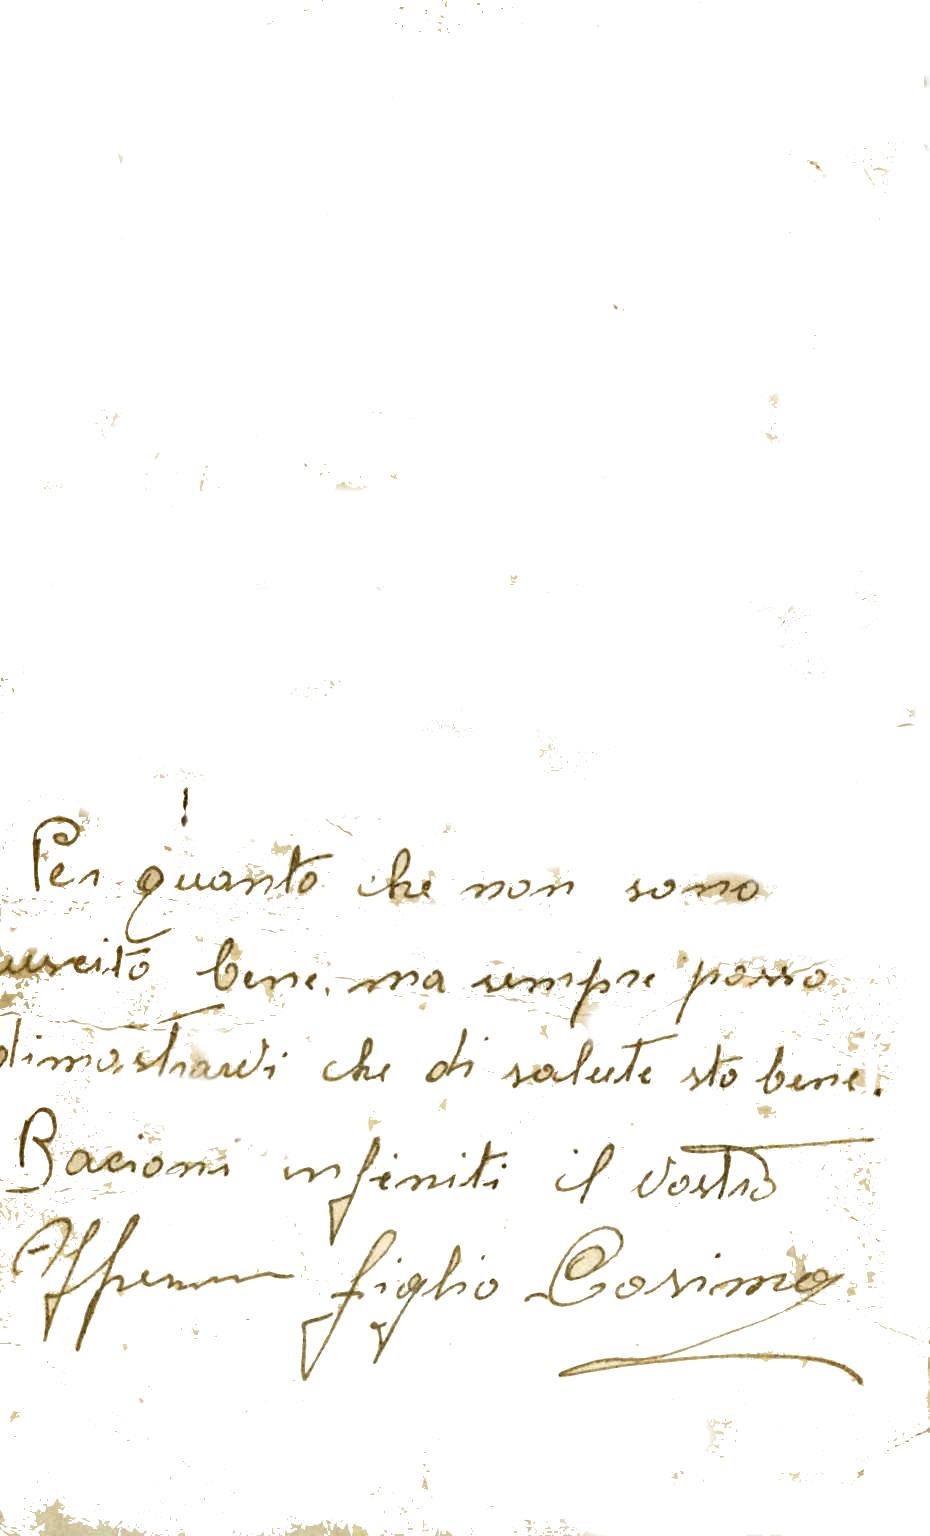 Per quanto che non sono
uscito bene, ma sempre posso
dimostrarvi che di salute sto bene.
Bacioni infiniti il vostro
figlio Cosimo